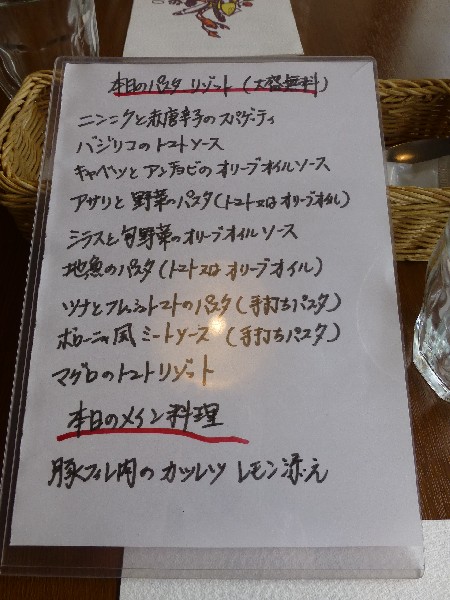 本日のパスタ リゾット (大盛無料)
ニンニクと赤唐辛子のスパゲティ
バジリコのトマトソース
キャベツとアンチョビのオリーブオイルソース
アサリと野菜のパスタ(トマト又はオリーブオイル)
シラスと旬野菜のオリーブオイルソース
地魚のパスタ(トマト又はオリーブオイル)
ツナとフレッシュトマトのパスタ(手打ちパスタ)
ボローニャ風ミートソース (手打ちパスタ)
マグロのトマトリゾット
本日のメイン料理
豚フィレ肉のカツレツ レモン添え